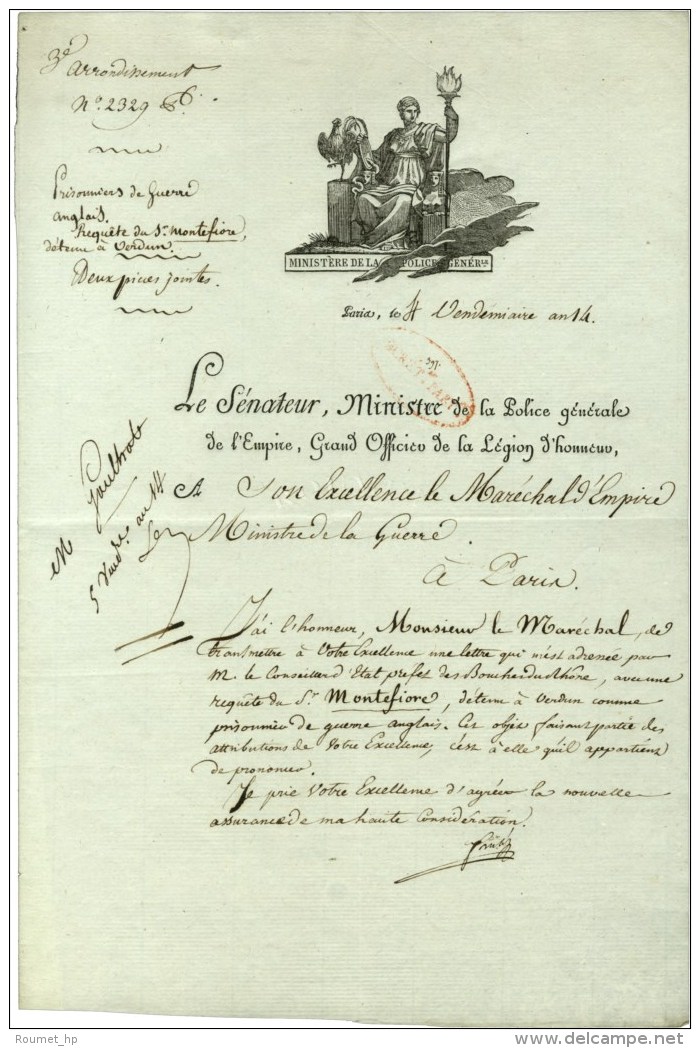 3e arrondissement
No. 2329
Prisonniers de Guerre
anglais.
Requête du Sr. Montefiore,
détenu à Verdun.
Deux pieces jointes.
MINISTÈRE DE LA POLICE GÉNÉRLE
Paris, le 4 Vendémiaire an 14.
Le Sénateur, Ministre de la Police générale
de l'Empire, Grand Officier de la Légion d'honneur,
A Son Excellence le Maréchal d'Empire
Ministre de la Guerre.
à Paris.
M
5 Vend.re an 14
J'ai l'honneur, Monsieur le Maréchal, de
transmettre à Votre Excellence une lettre qui m'est adressée par
M. le Conseiller d'Etat prefet des Bouches du Rhône, avec une
requête du Sr. Montefiore, détenu à Verdun comme
prisonnier de guerre anglais. Cet objet faisant partie des
attributions de Votre Excellence, c'est à elle qu'il appartient
de prononcer.
Je prie Votre Excellence d'agréer la nouvelle
assurance de ma haute Considération.
Roumet_hp
delcampe.net